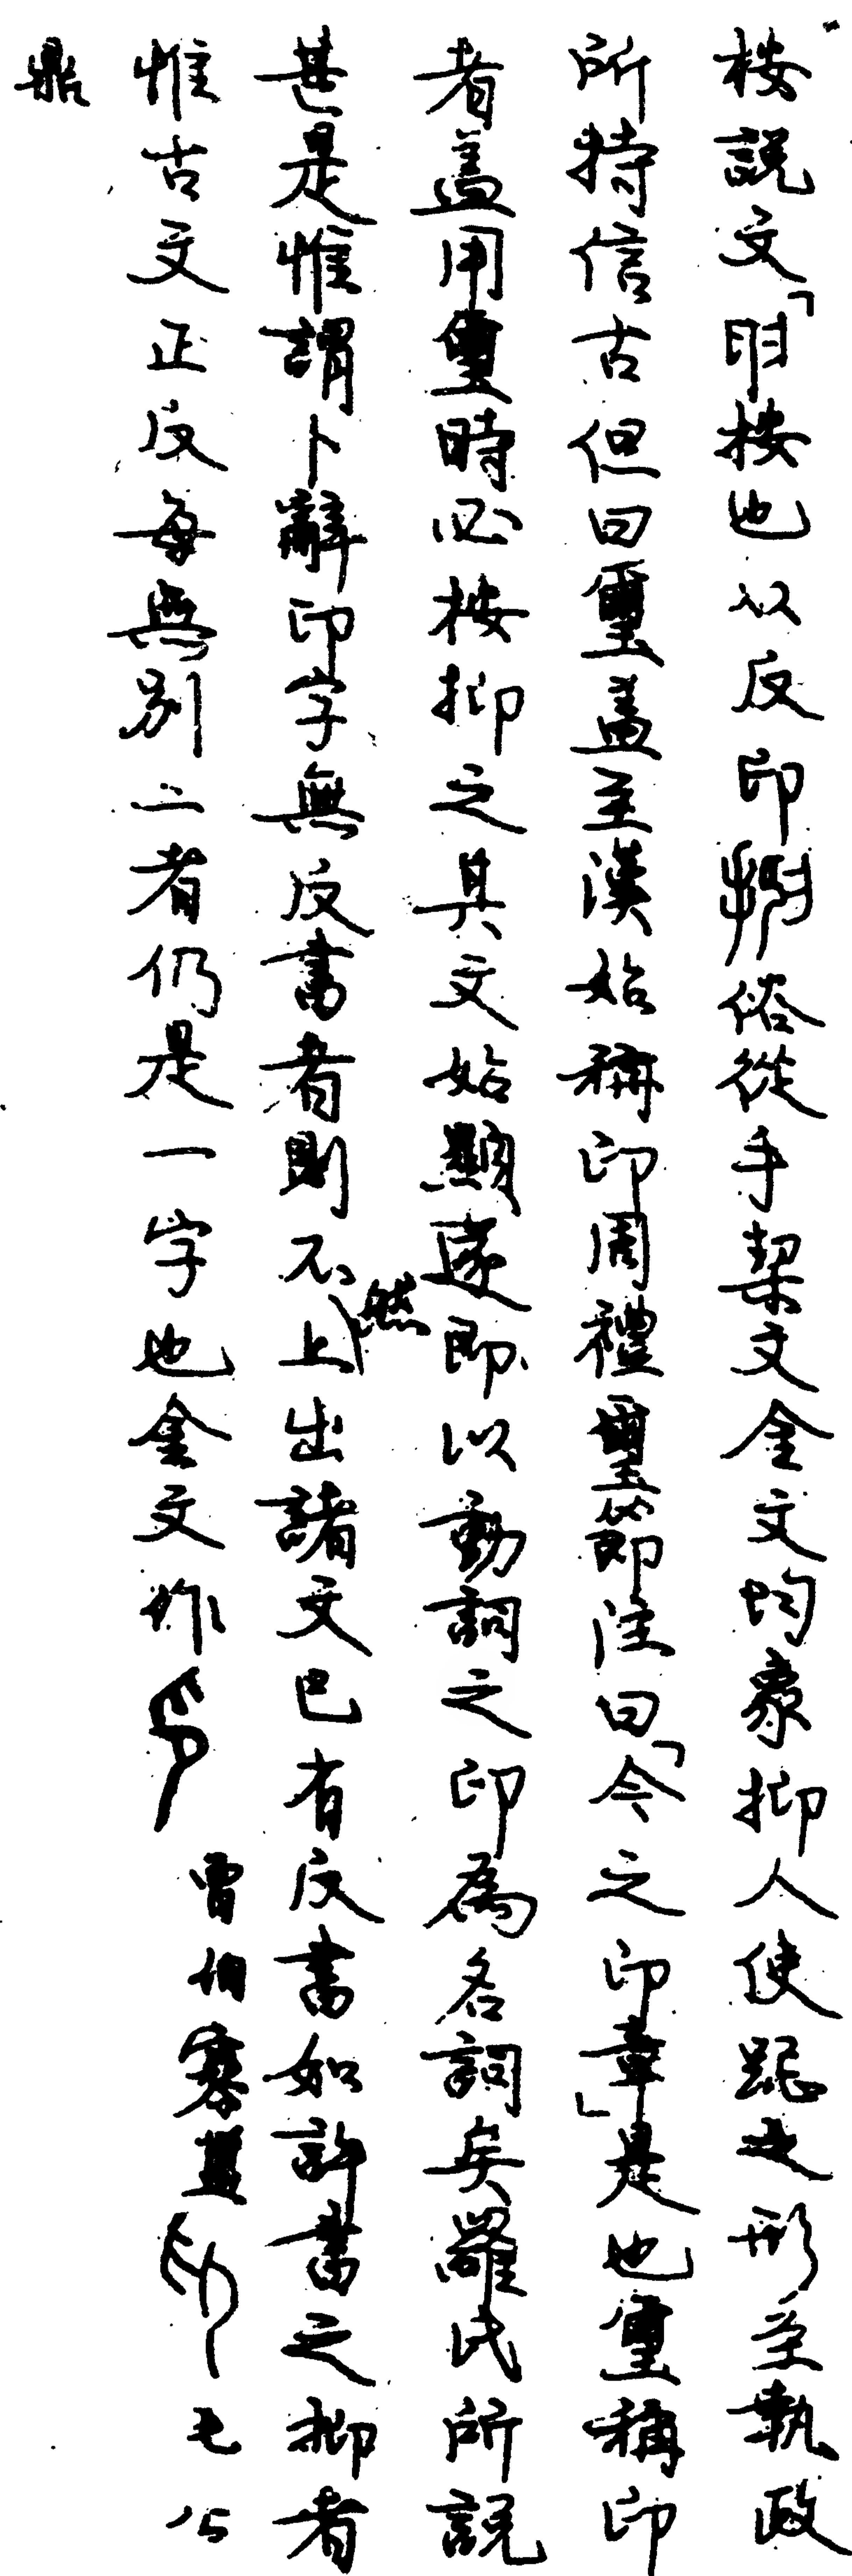 按説文「𢑏按也从反印𢑏俗從手栔文金文均象抑人使跽之形至執政
所持信古但曰璽蓋至漢始稱印周禮璽節注曰「今之印章」是也璽稱印
者蓋用璽時必按抑之其文始顯遂即以動詞之印為名詞矣羅氏所説
甚是惟謂卜辭印字無反書者則不然上出諸文已有反書如許書之抑者
惟古文正反每無別二者仍是一字也金文作 曾伯簠 毛公
鼎